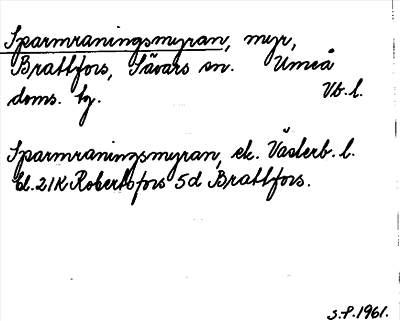 Sparmraningsmyran, myr,
Brattfors, Sävars sn. Umeå
doms. hg. Vb. l.
Sparmraningsmyran, ek. Västerb. l.
bl. 21K Robertsfors 5d Brattfors.
S.P. 1961.